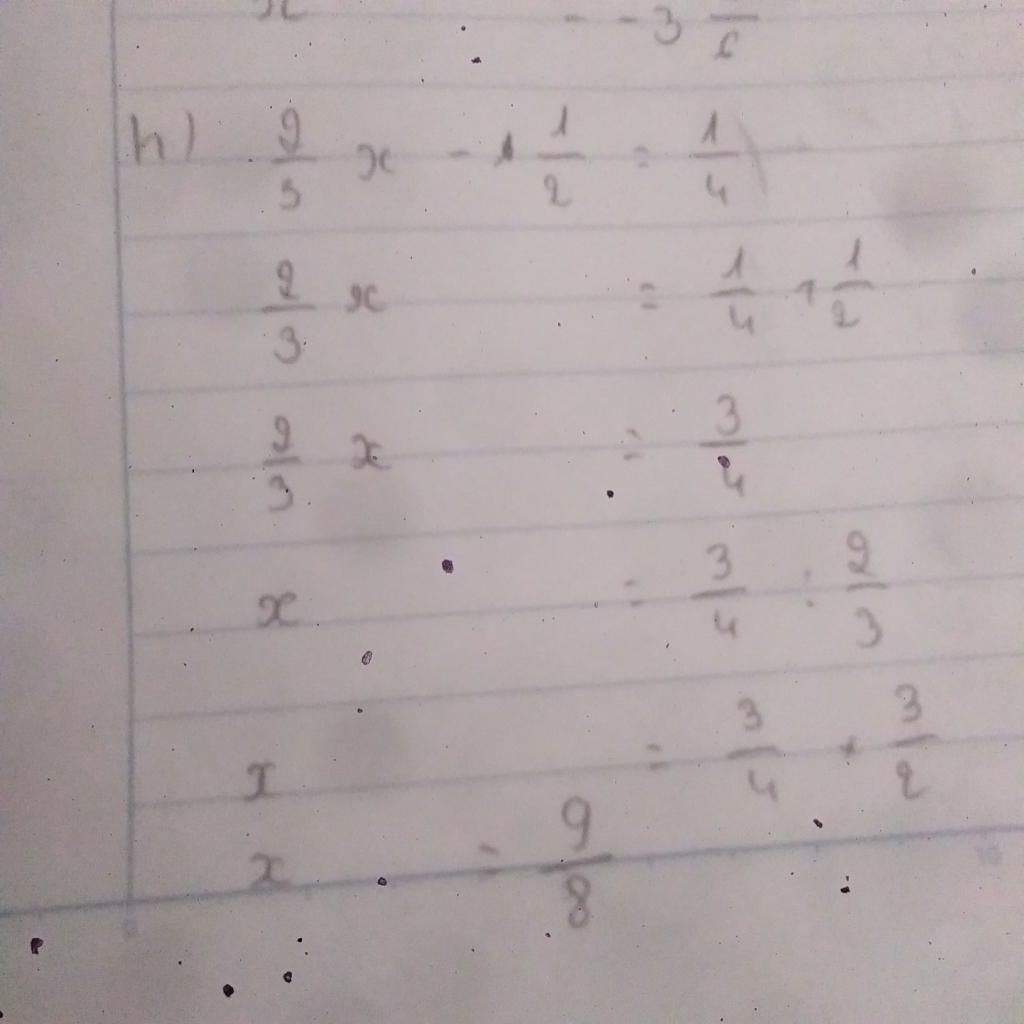 x = -3 
h) 2/3 x - 1/2 = 1/4
2/3 x = 1/4 + 1/2
2/3 x = 3/4
x = 3/4 : 2/3
x = 3/4 . 3/2
x = 9/8